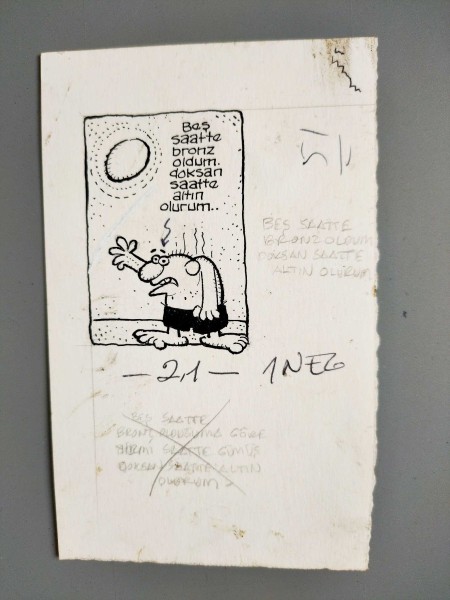 Beş
saatte
bronz
oldum.
doksan
saatte
altın
olurum..
BEŞ SAATTE
BRONZ OLDUM
DOKSAN SAATTE
ALTIN OLURUM
— 2,1 — 1NEG
BEŞ SAATTE
BRONZ OLDUĞUMA GÖRE
YİRMİ SAATTE GÜMÜŞ
DOKSAN SAATTE ALTIN
OLURUM